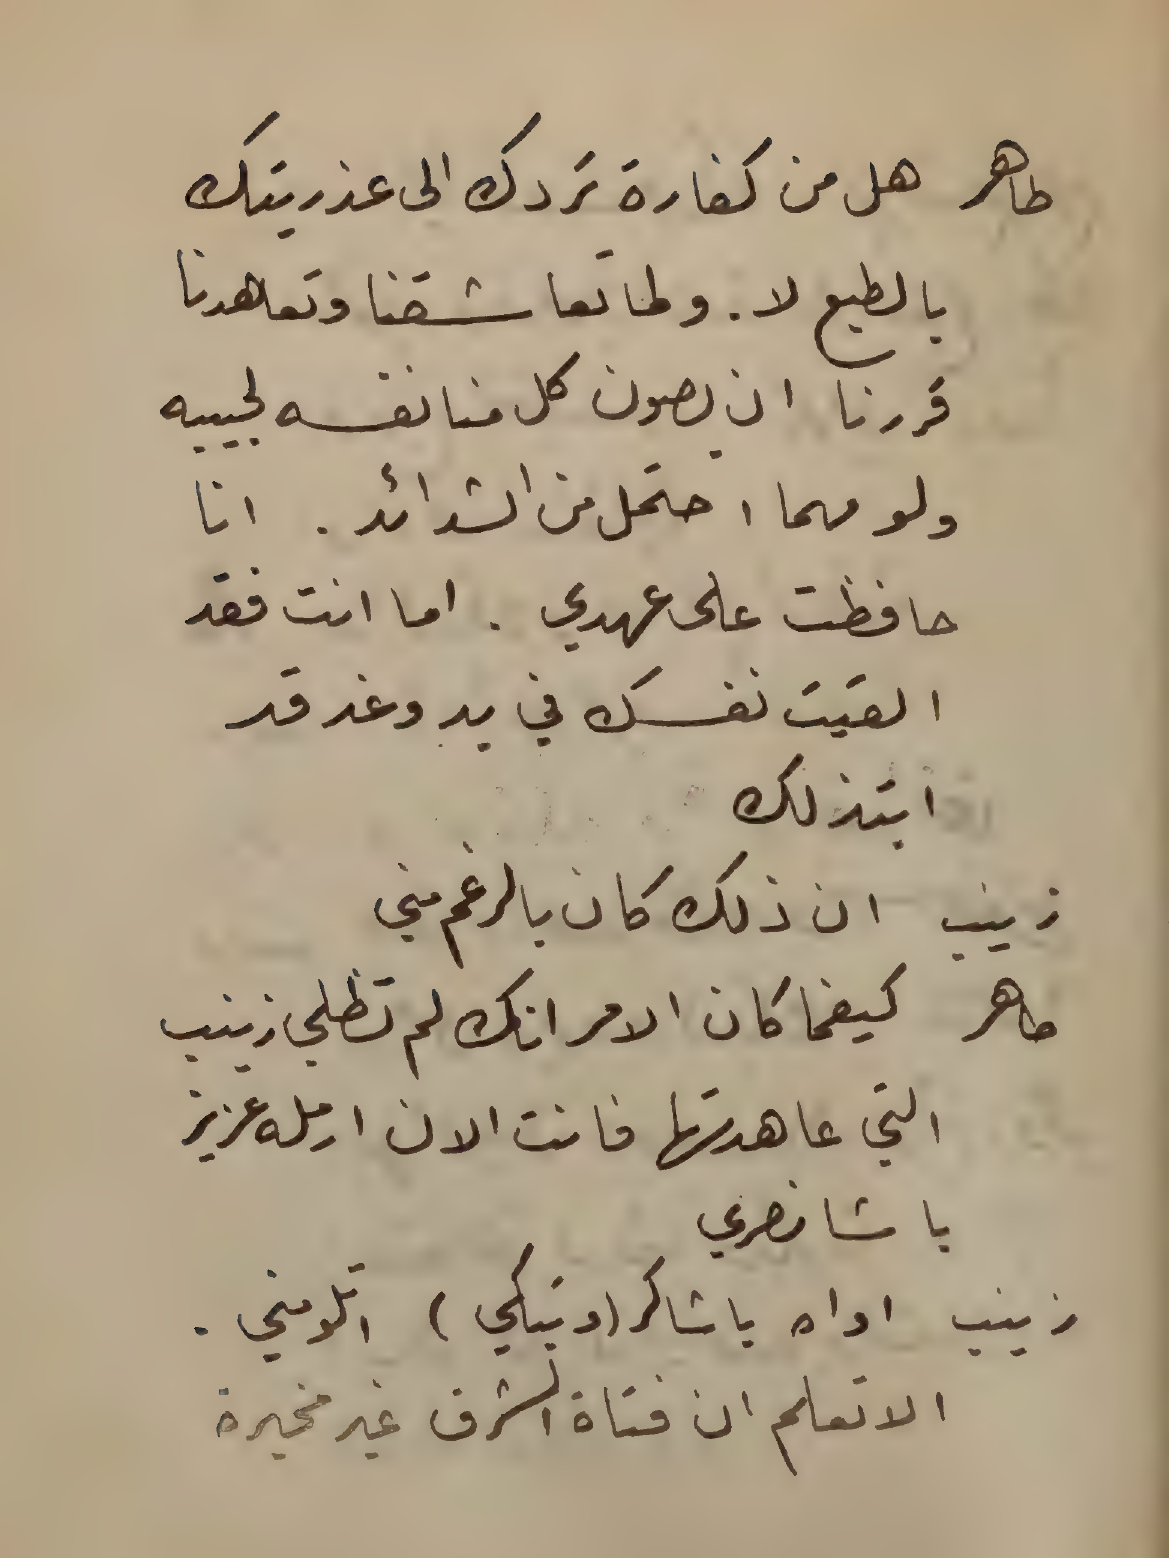 طاهر هل من كفارة تردك الى عذريتك
بالطبع لا. ولما تعاشقنا وتعاهدنا
قررنا ان يصون كل منا نفسه لحبيبه
ولو مهما احتمل من الشدائد. انا
حافظت على عهدي. اما انت فقد
القيت نفسك في يد وغد قد
ابتذلك
زينب ان ذلك كان بالرغم مني
طاهر كيفما كان الامر انك لم تظلي زينب
التي عاهدتها فانت الان ارمله عزيز
باشا نصري
زينب اواه يا شاكر (وتبكي) اتلومني.
الا تعلم ان فتاة الشرق غير مخيرة